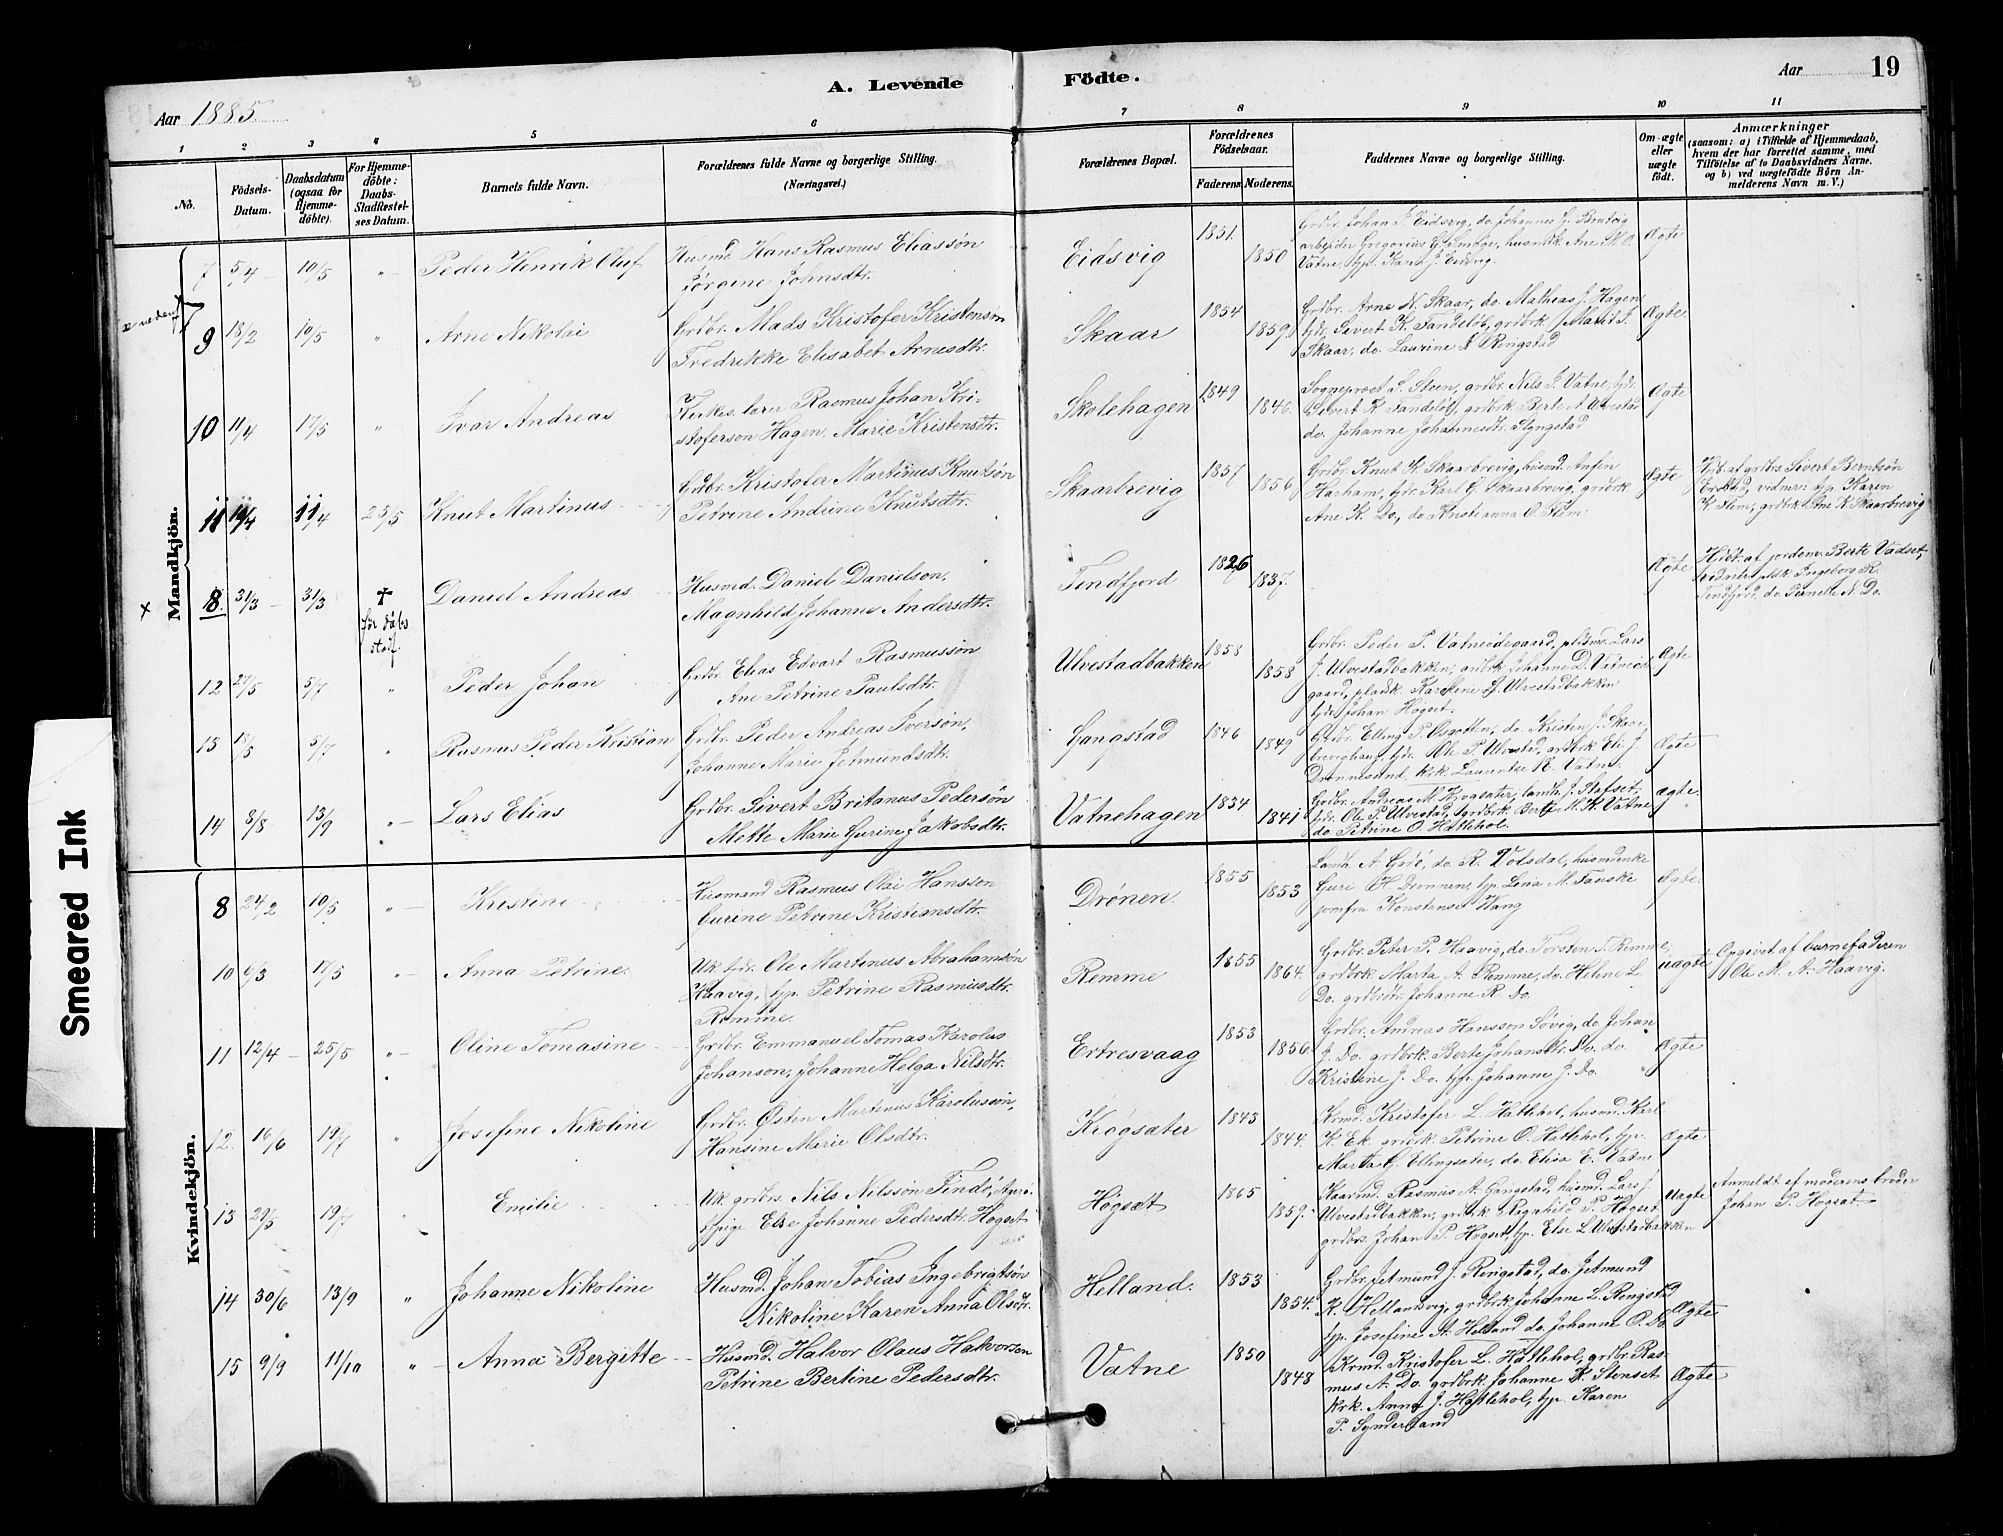 A. Levende Födte.
Aar 1885.
Aar 19
1 2 3 4 5 6 7 8 9 10 11
No.
Födsels-Datum.
Daabsdatum (ogsaa for Hjemme-döbte).
For Hjemme-döbte: Daabs Stadfæstel-ses Datum.
Barnets fulde Navn.
Forældrenes fulde Navne og borgerlige Stilling. (Næringsvei.)
Forældrenes Bopæl.
Forældrenes Födselsaar.
Faderens. Moderens.
Faddernes Navne og borgerlige Stilling.
Om ægte eller uægte født.
Anmærkninger (saasom: a) i Tilfælde af Hjemmedaab, hvem der har forrettet samme, med Tilföielse af to Daabsvidners Navne. og b) ved uægtefödte Börn An-melderens Navn m. V.)
Mandkjön.
7 5/4 10/5 " Peder Henrik Oluf
Husmd. Hans Rasmus Eliassön
Jörgine Johnsdtr.
Eidsvig 1851. 1850
Grdbr. Johan P. Eidsvig, do. Johannes G. Brutvig
arbejder Gregorius G. Smöge, husmdk. Ane M. O.
Vatne, tjp. Karen J. Eidsvig.
Ægte
9 18/2 10/5 " Arne Nikolai
Grdbr. Mads Kristofer Kristensön
Fredrikke Elisabet Arnesdtr.
Skaar 1854 1859.
Grdbr. Arne N. Skaar, do. Mathias J. Hagen
tjdr. Sivert K. Tandelöb, grdbrk. Marit J.
Skaar, do. Laurine S. Ringstad
Ægte.
10 11/4 17/5 " Ivar Andreas
Kirkes. lærer Rasmus Johan Kri-
stoferson Hagen, Marie Kristensdtr.
Skolehagen 1849 1846.
Sogneprost S. Steen, grdbr. Nils J. Vatne, tjdr.
Sivert K. Tandelöb, grdbrk. Berte A. Ulvestad
do. Johanne Johannesdtr. Slyngstad
Ægte
11 11/4 25/5 Knut Martinus
Grdbr. Kristofer Martinus Knutsön
Petrine Andrine Knutsdtr.
Skaarbrevig 1857 1856
Grdbr. Knut K. Skaarbrevig, husmd. Anfin
Harham, tjdr. Karl G. Skaarbrevig, grdbrk
Ane K. Do., do. Kristianna O. Slem.
Ægte
Hjdt. af grdbrs. Sivert Berntsön
Erstad, vidner: tjp. Karen
K. Flem, grdbrk. Ane K. Skaarbrevig
x 8. 31/3 31/3 † før daabs stadf.
Daniel Andreas
Husmd. Daniel Danielson,
Magnhild Johanne Andersdtr.
Tindfjord 1826 1837.
Ægte
Hjdt. af jordem. Berte Vadset,
vidner Mdk Ingeborg K.
Tindfjord, do. Pernelle N. Do.
12 27/5 5/7 " Peder Johan
Grdbr. Elias Edvart Rasmussön
Ane Petrine Paulsdtr.
Ulvestadbakken 1858 1858
Grdbr. Peder P. Vatneödegaard, pldsmd. Lars
J. Ulvestadbakken, grdbrk. Johanne D. Vatneöd
gaard, pladsk. Karoline J. Ulvestadbakken
tjdr. Johan Högset.
Ægte
13 15/5 5/7 " Rasmus Peder Kristian
Grdbr. Peder Andreas Iversön,
Johanne Marie Jetmundsdtr.
Gangstad 1846 1849
Grdbr. Elling P. Osgotten, do. Kristen J. Skaar
brevighaug, tjdr. Ole P. Ulvestad, grdbrk Eli J.
Drønnesund, krk. Laurentze R. Vatne.
Ægte
14 8/8 13/9 " Lars Elias
Grdbr. Sivert Britanus Pedersön
Mette Marie Gurine Jakobsdtr.
Vatnehagen 1834 1841
Grdbr. Andreas M. Krogsæter, landh. J. Stafset,
tjdr. Ole P. Ulvestad, grdbrk. Berte M. K. Vatne
do. Petrine O. Hatlehol.
ægte.
Kvindekjön.
8 24/2 10/5 " Kristine
Husmand Rasmus Olai Hanssen
Gurine Petrine Kristiansdtr.
Drönen. 1855 1853
Landh. A. Grdö, do. R. Volsdal, husmdenke
Guri H. Drønnen, tjp. Lina M. Fauske
jomfru Konstanse Wang
Ægte.
10 6/3 17/5 " Anna Petrine.
Uk. tjdr. Ole Martinus Abrahamsön
Haavig, tjp. Petrine Rasmusdtr.
Remme.
Remme 1855 1864.
Grdbr. Peter P. Haavig, do. Torsten T. Remme,
grdbrk Marta A. Remme, do. Helene L.
Do. grdbrdtr. Johanne R. Do.
uægte
Opgivet af barnefaderen
Ole M. A. Haavig.
11 12/4 25/5 " Oline Tomasine
Grdbr. Emmanuel Tomas Karolus
Johanson, Johanne Helga Nilsdtr.
Ertresvaag 1853 1856
Grdbr. Andreas Hansson Sövig, do. Johan
J. Do. grdbrk. Berte Johansdtr. Do. do.
Kristine J. Do. tjp. Johanne J. Do.
Ægte
12. 16/6 19/7 " Josefine Nikoline
Grdbr. Østen Martinus Karolussön,
Hansine Marie Olsdtr.
Krögsæter 1843 1844.
Krmd. Kristofer L. Hatlehol, husmd. Karl
K. Ek. grdbrk. Petrine O. Hatlehol, tjp.
Marta G. Ellingsæter, do. Elisa E. Vatne
Ægte
13 29/5 19/7 Emilie
Uk. grdbrs. Nils Nilssön Tindö,
tjpige Else Johanne Pedersdtr. Högset
Högset 1865 1859.
Kaarmd. Rasmus A. Gangstad, husmd. Lars J.
Ulvestadbakken, grdbrk. Ragnhild P. Högset
grdbrs. Johan P. Högset, tjp. Else L. Ulvestadbakken
Uægte
Anmeldt af moderens broder
Johan P. Högset.
14 30/6 13/9 " Johanne Nikoline
Husmd. Johan Tobias Ingebrigtsön
Nikoline Karen Anna Olsdtr.
Helland. 1853 1854.
Grdbr. Jetmund J. Ringstad, do. Jetmund
K. Hellandsvig, grdbrk. Johanne L. Ringstad
tjp. Josefine A. Helland do. Johanne O. Do.
Ægte
15 9/9 11/10 " Anna Bergitte
Husmd. Halvor Olaus Halvorsen
Petrine Bertine Pedersdtr.
Vatne 1850 1848
Krmd. Kristofer L. Hatlehol, grdbr. Ras-
mus A. Do. grdbrk. Johanne K. Stenset
krk. Anne J. Hatlehol, tjp. Karen
P. Synderland
Ægte
Smeared Ink